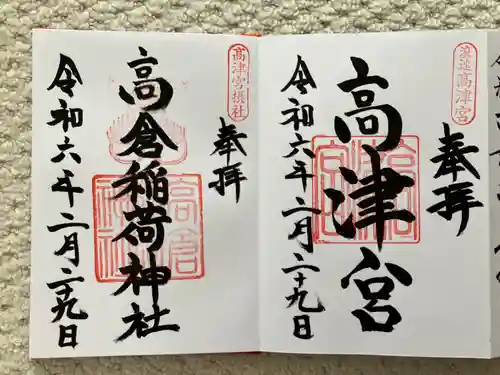 浪速高津宮
奉拝
高津宮
令和六年二月二十九日
高津宮摂社
奉拝
高倉稲荷神社
令和六年二月二十九日